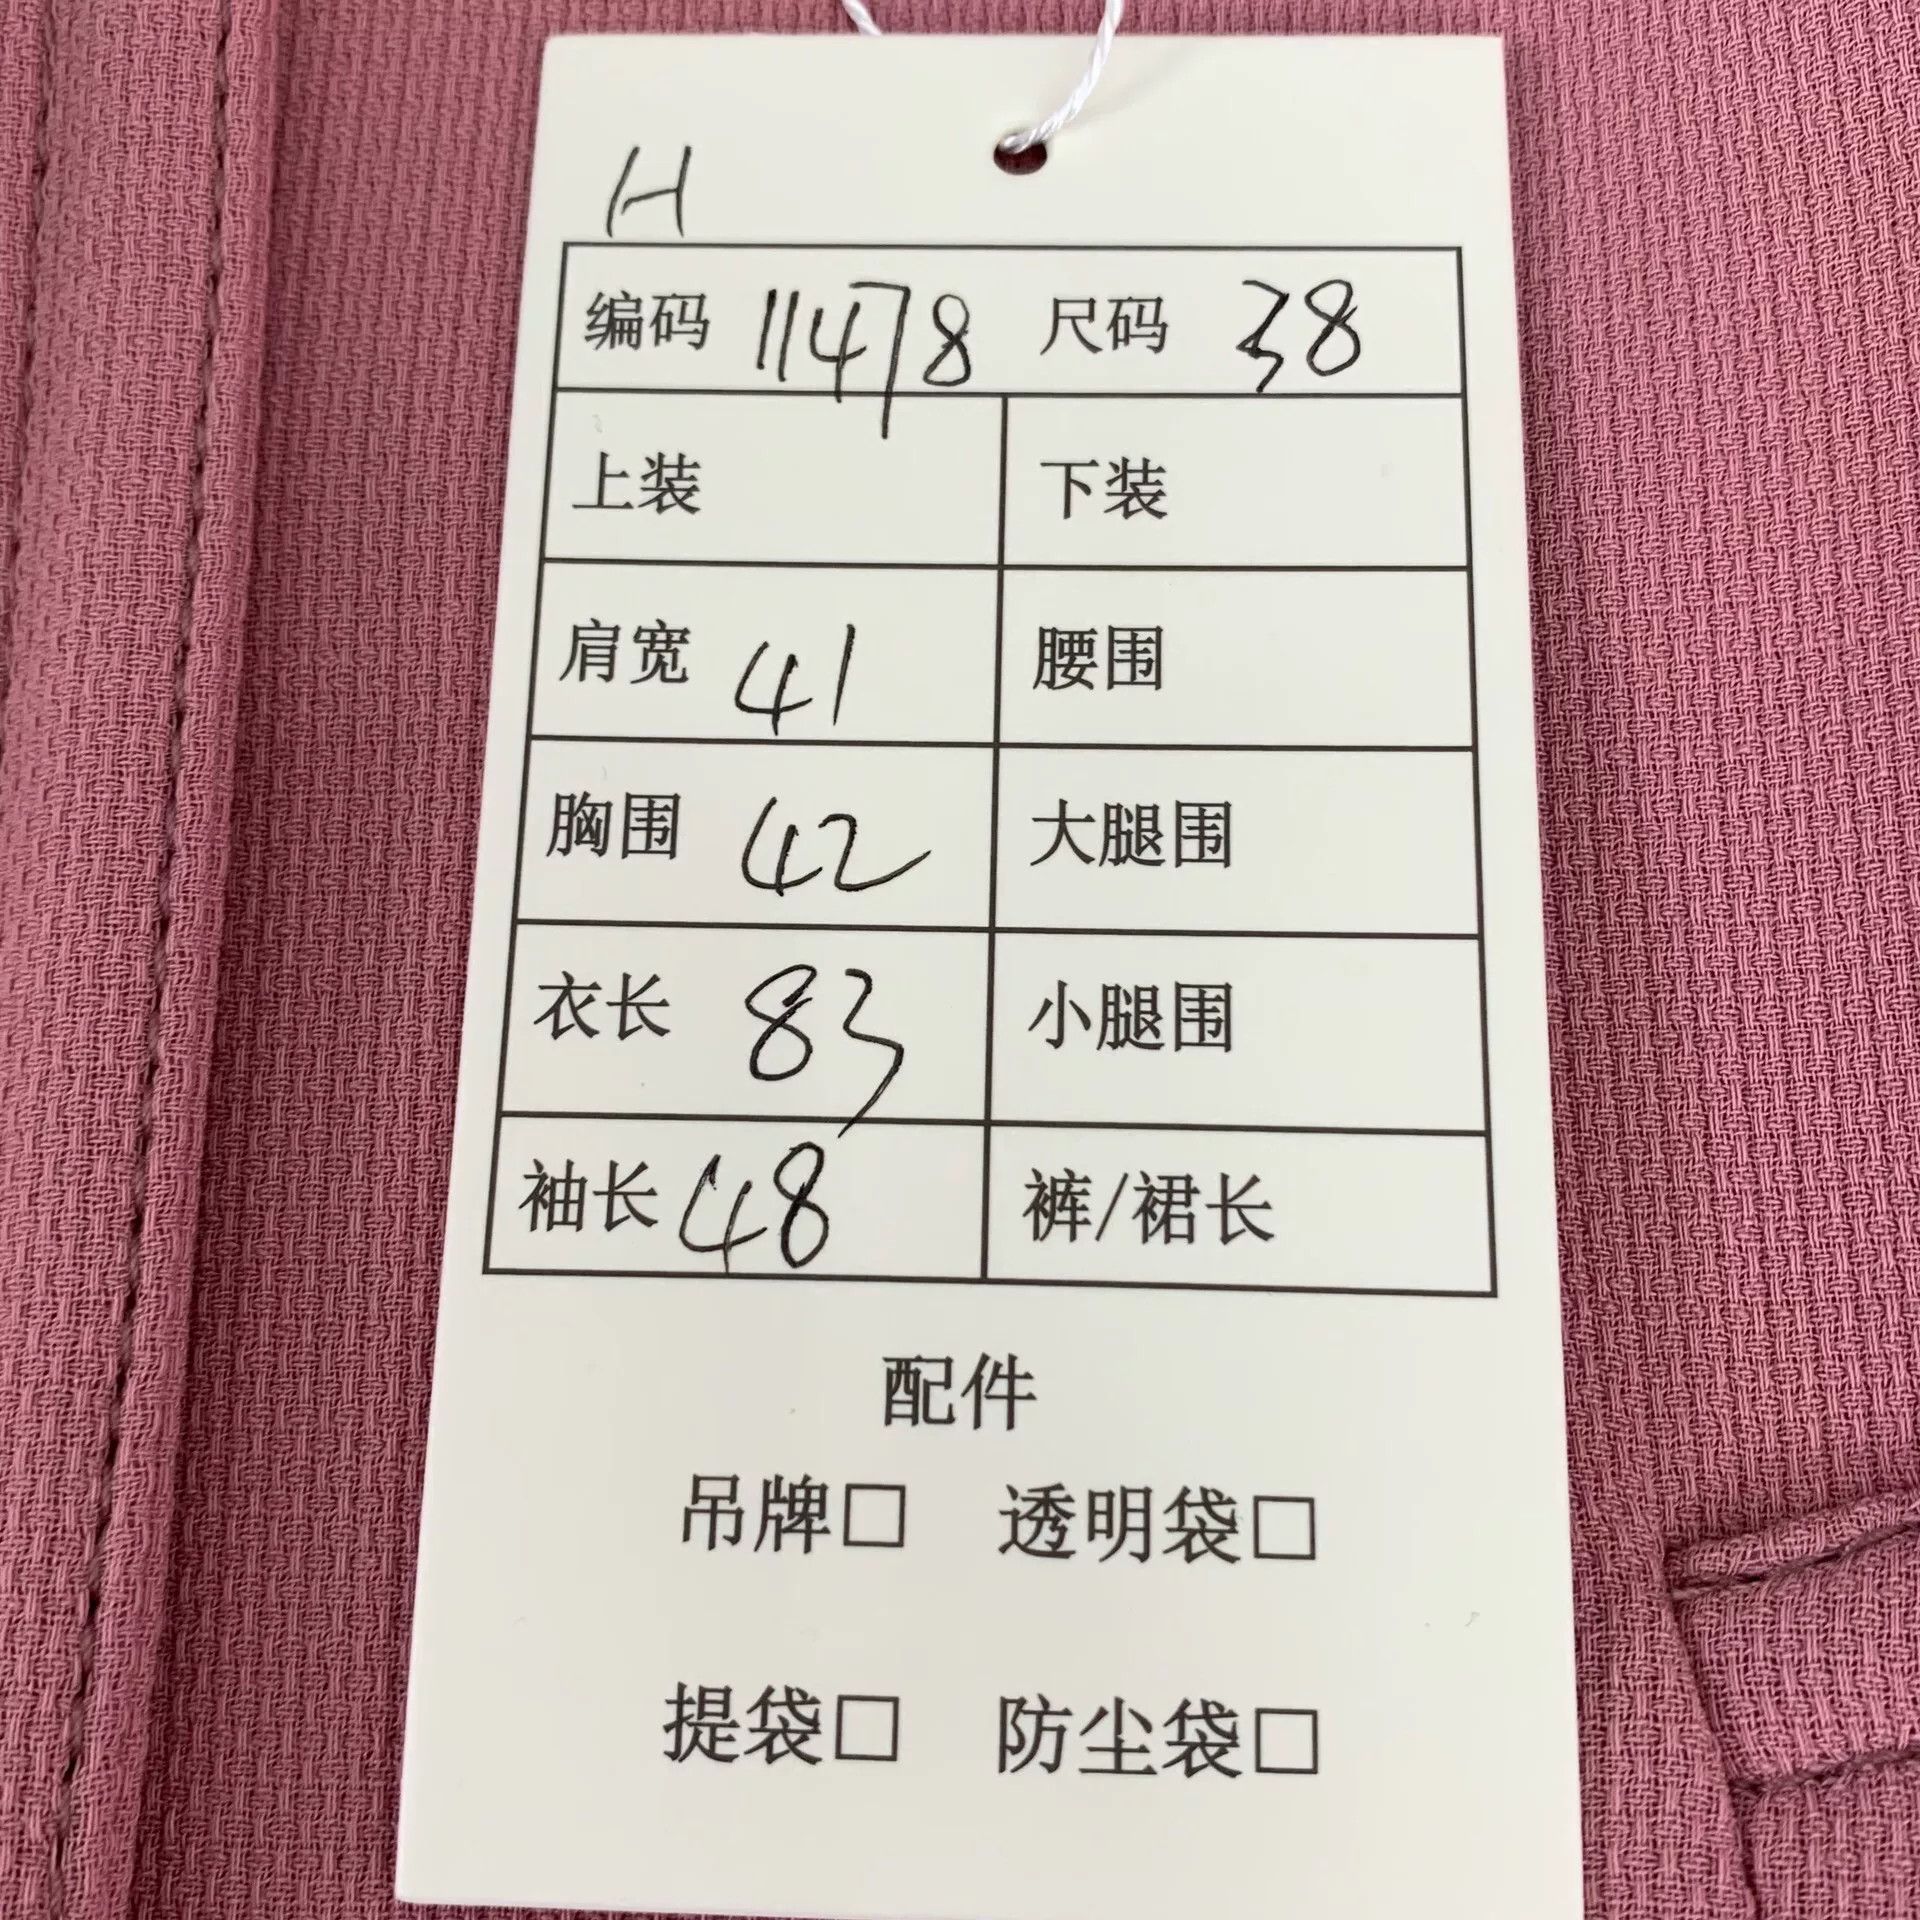 H
编码 11478 尺码 38
上装 下装
肩宽 41 腰围
胸围 42 大腿围
衣长 83 小腿围
袖长 48 裤/裙长
配件
吊牌□ 透明袋□
提袋□ 防尘袋□